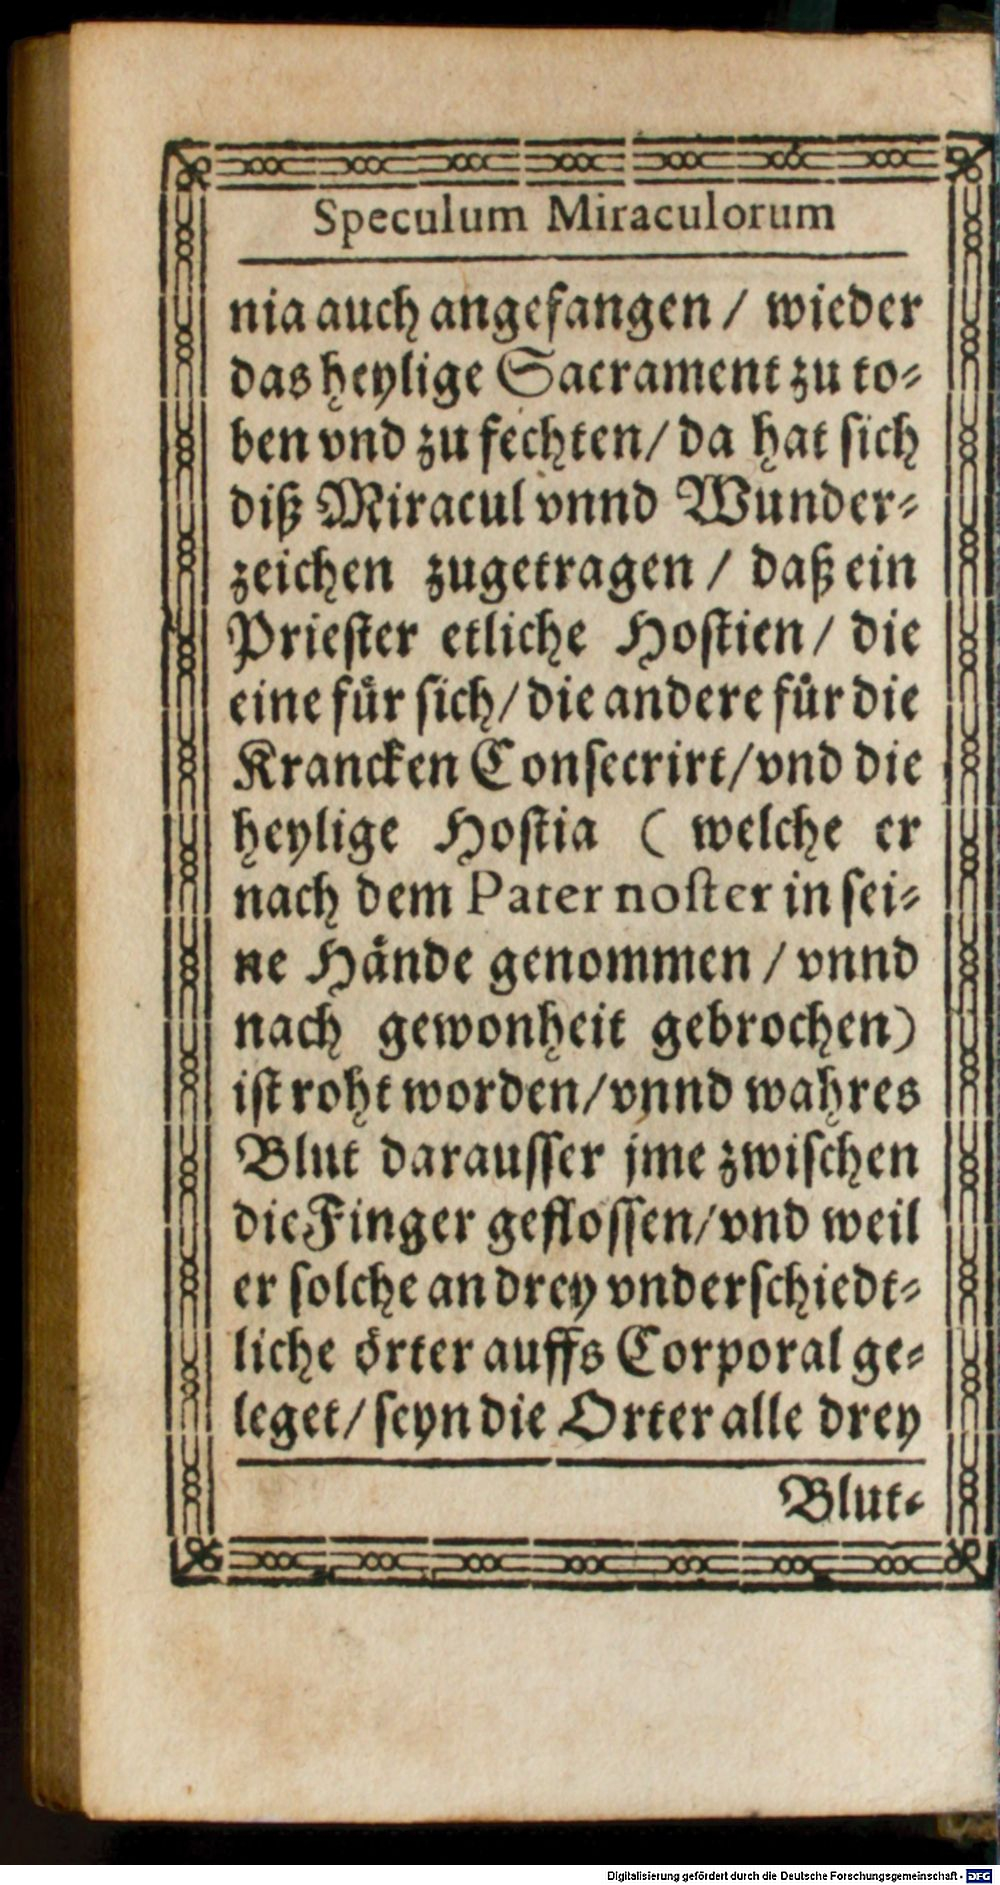 Speculum Miraculorum
nia auch angefangen / wieder
das heylige Sacrament zu to-
ben vnd zu fechten / da hat sich
diß Miracul vnnd Wunder-
zeichen zugetragen / daß ein
Priester etliche Hostien / die
eine für sich / die andere für die
Krancken Consecrirt / vnd die
heylige Hostia ( welche er
nach dem Pater noster in sei-
ne Hände genommen / vnnd
nach gewonheit gebrochen)
ist roht worden / vnnd wahres
Blut darausser jme zwischen
die Finger geflossen / vnd weil
er solche an drey vnderschiedt-
liche örter auffs Corporal ge-
leget / seyn die Orter alle drey
Blut-
Digitalisierung gefördert durch die Deutsche Forschungsgemeinschaft - DFG